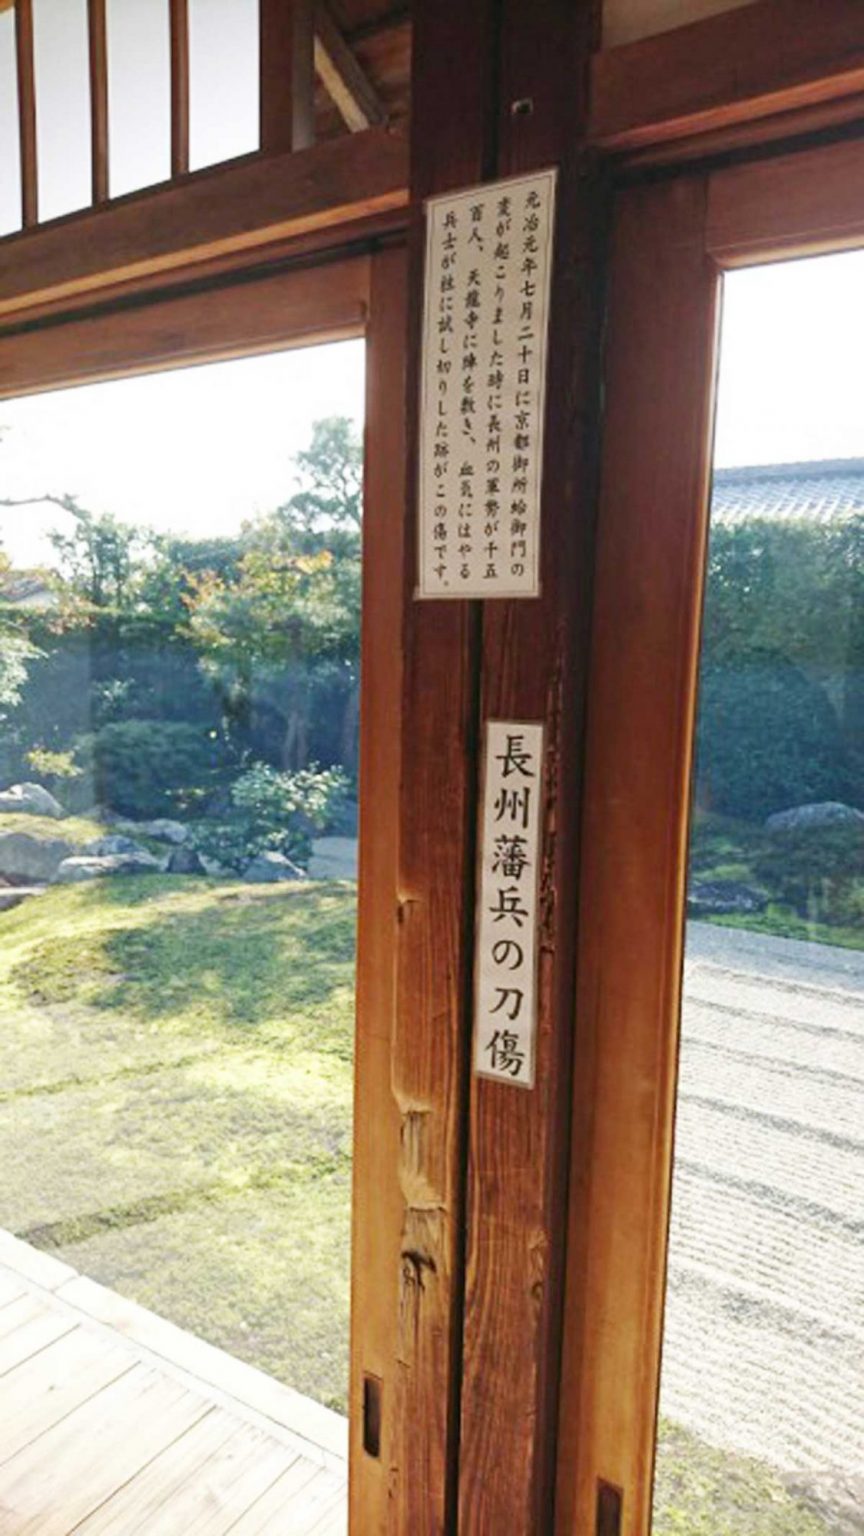 元治元年七月二十日に京都御所蛤御門の
変が起こりました時に長州の軍勢が千五
百人、天龍寺に陣を敷き、血気にはやる
兵士が柱に試し切りした跡がこの傷です。
長州藩兵の刀傷